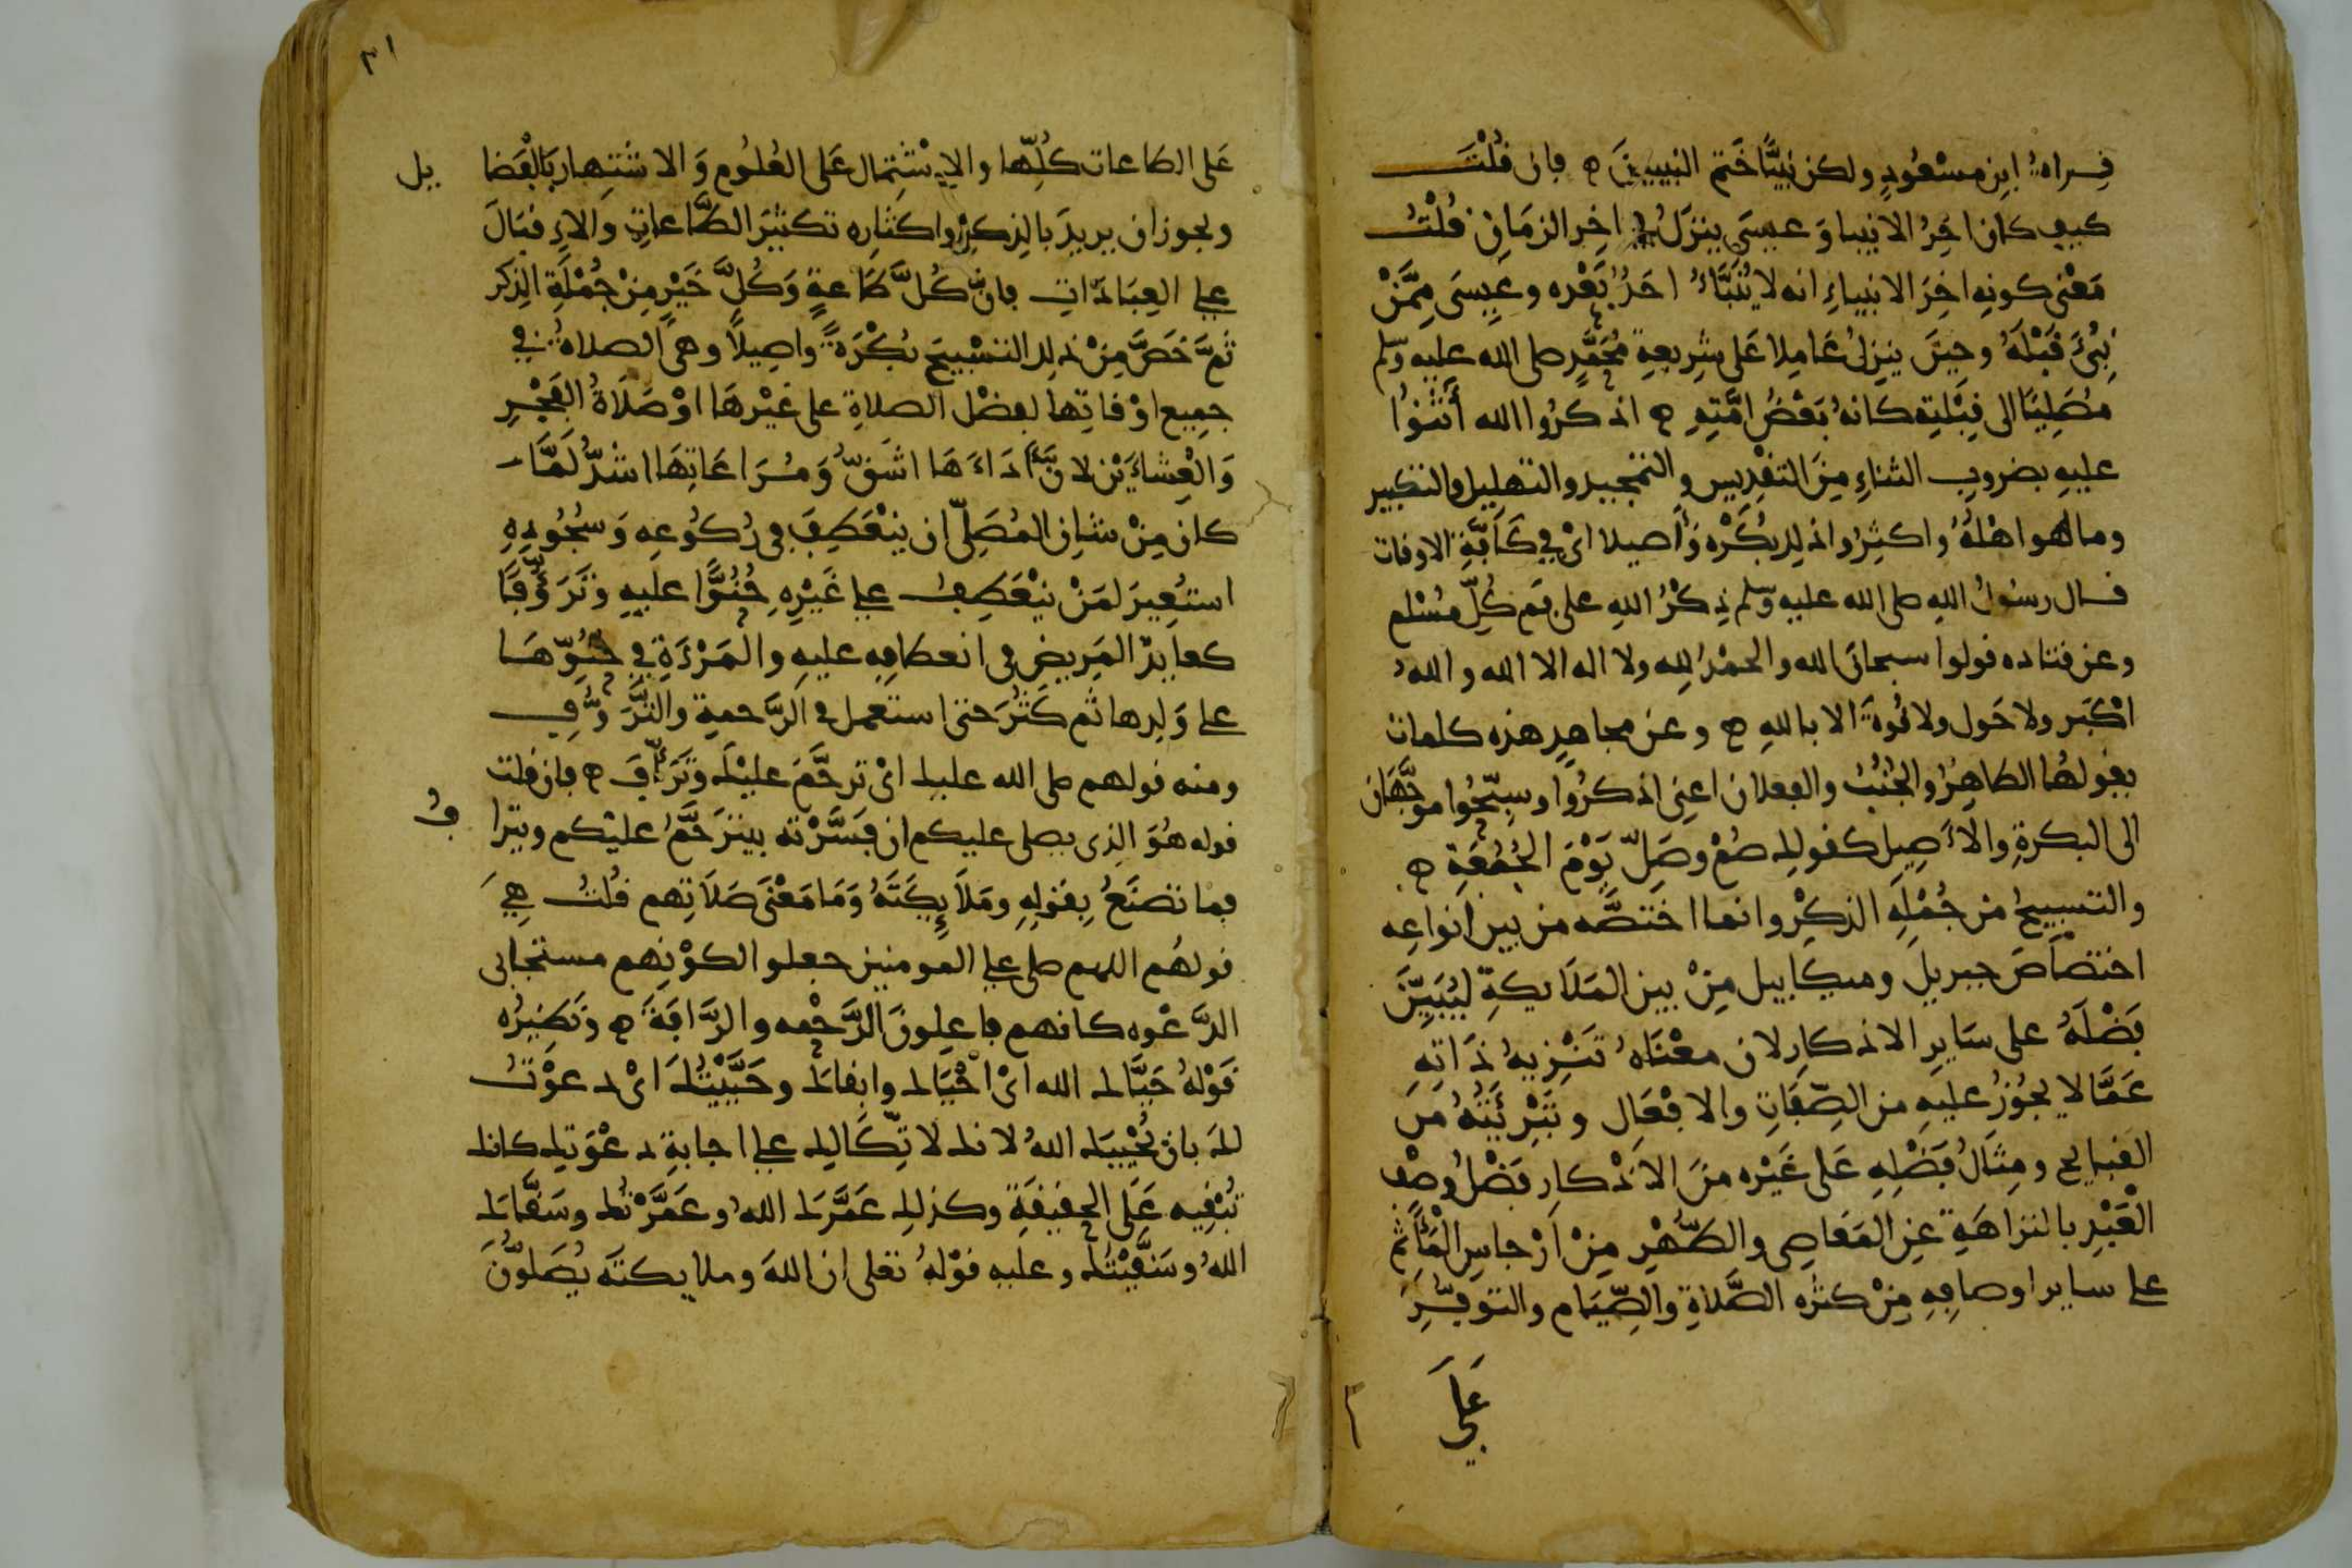 قراه ابن مسعود ولكن نبيا ختم النبيين ه فان قلت
كيف كان اخر الانبيا وعيسى ينزل في اخر الزمان قلت
معنى كونه اخر الانبياء انه لا ينبأ احد بعده وعيسى ممن
نبئ قبله وحين ينزل عاملا على شريعة محمد صلى الله عليه وسلم
مصليا الى قبلته كانه بعض امته ه اذكروا الله أثنوا
عليه بضروب الثناء من التقديس والتمجيد والتهليل والتكبير
وما هو اهله واكثروا ذلك بكره وأصيلا اي في كافة الاوقات
قال رسول الله صلى الله عليه وسلم ذكر الله على فم كل مسلم
وعن قتاده قولوا سبحان الله والحمد لله ولا اله الا الله والله
اكبر ولا حول ولا قوة الا بالله ه وعن مجاهد هذه كلمات
يقولها الطاهر والجنب والفعلان اعني اذكروا وسبحوا موجهان
الى البكرة والاصيل كقولك صم وصل يوم الجمعة ه
والتسبيح من جملة الذكر وانما اختصه من بين انواعه
اختصاص جبريل وميكاييل من بين الملايكة ليبين
فضله على ساير الاذكار لان معناه تنزيه ذاته
عما لا يجوز عليه من الصفات والافعال وتبرئته من
القبايح ومثال فضله على غيره من الاذكار فضل وصف
العبد بالنزاهة عن المعاصي والطهر من ارجاس المأثم
على ساير اوصافه من كثره الصلاة والصيام والتوفر
على
٣١
على الطاعات كلها والاشتمال على العلوم والاشتهار بالفضا يل
ويجوز ان يريد بالذكر واكثاره تكثير الطاعات والاقبال
على العبادات فان كل طاعة وكل خير من جملة الذكر
ثم خص من ذلك التسبيح بكرة واصيلا وهي الصلاة في
جميع اوقاتها لفضل الصلاة على غيرها او صلاة الفجر
والعشاءين لان أداءها اشق ومراعاتها اشد لما
كان من شان المصلي ان ينعطف في ركوعه وسجوده
استعير لمن ينعطف على غيره حنوا عليه وترؤفا
كعايد المريض في انعطافه عليه والمرءة في حنوها
على ولدها ثم كثر حتى استعمل في الرحمة والترؤف
ومنه قولهم صلى الله عليك اي ترحم عليك وترأف ه فان قلت
قوله هو الذي يصلي عليكم ان فسرته بيترحم عليكم ويترا ف
فما تصنع بقوله وملايكته وما معنى صلاتهم قلت هي
قولهم اللهم صلى على المومنين جعلوا لكونهم مستجابي
الدعوه كانهم فاعلون الرحمه والرافة ه ونظيره
قوله حياك الله اي احياك وابقاك وحييتك اي دعوت
لك بان يحييك الله لانك لاتكالك على اجابة دعوتك كانك
تبقيه على الحقيقة وكذلك عمرك الله وعمرتك وسقاك
الله وسقيتك وعليه قوله تعلى ان الله وملايكته يصلون